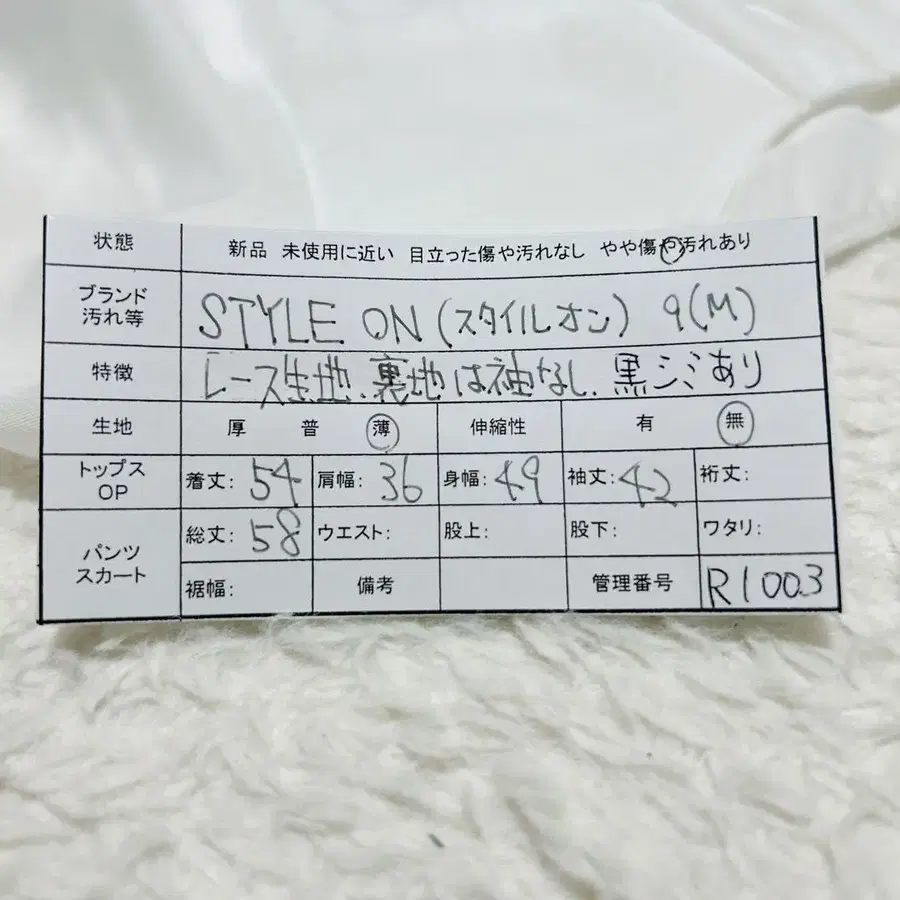 状態 新品 未使用に近い 目立った傷や汚れなし やや傷や汚れあり
ブランド
汚れ等
STYLE ON (スタイルオン) 9(M)
特徴 レース生地、裏地は袖なし、黒シミあり
生地 厚 普 薄 伸縮性 有 無
トップス
OP
着丈: 54 肩幅: 36 身幅: 49 袖丈: 42 裄丈:
パンツ
スカート
総丈: 58 ウエスト: 股上: 股下: ワタリ:
裾幅: 備考 管理番号 R1003